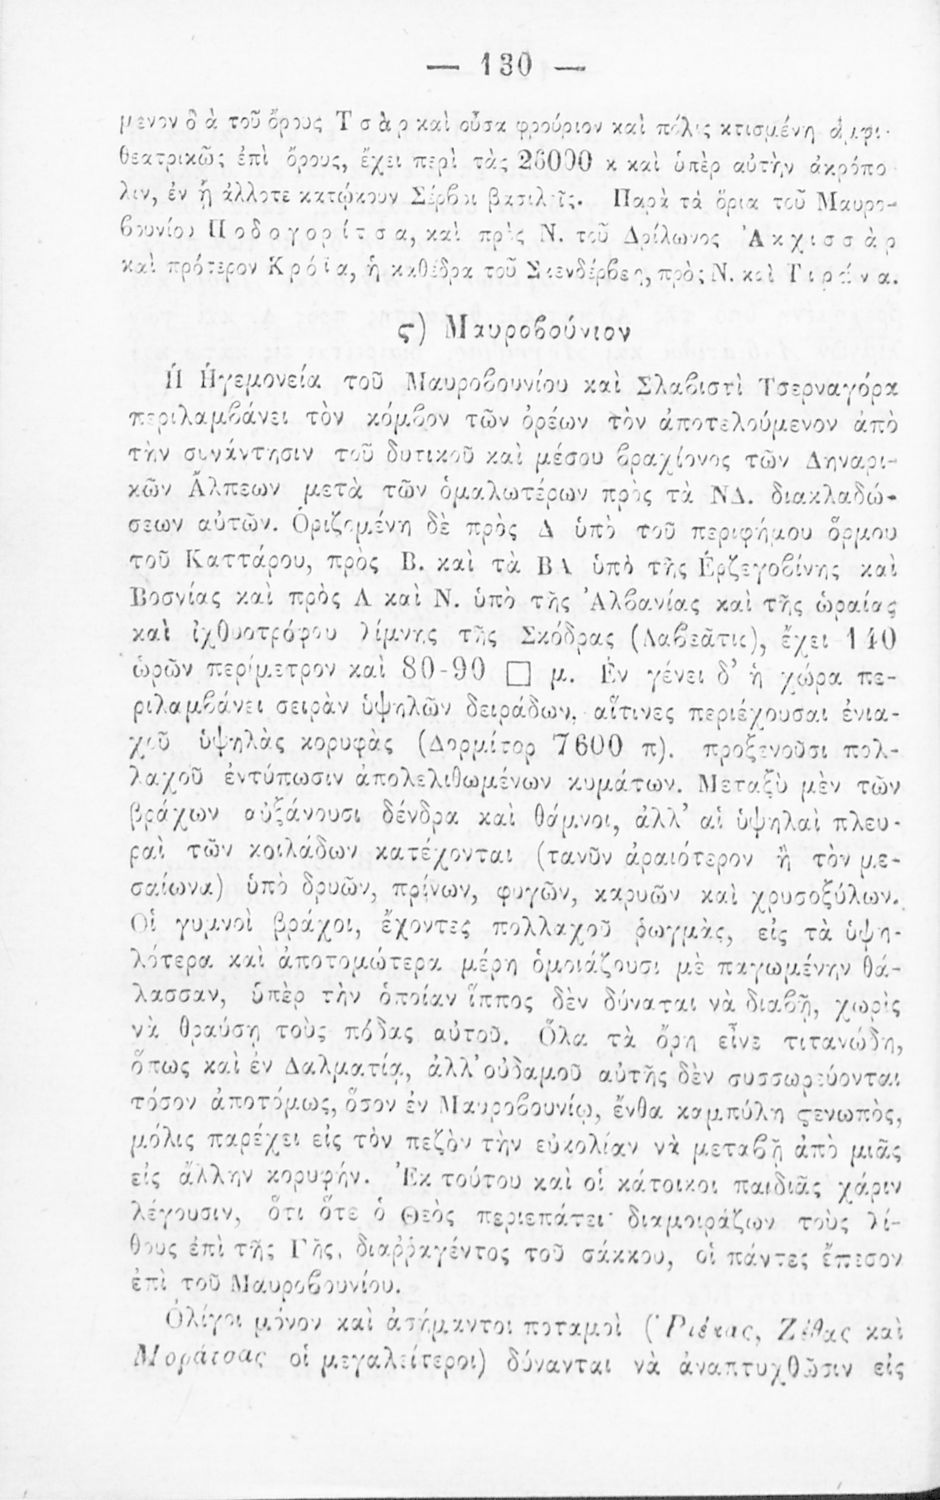 — 130 —
μενον διὰ τοῦ ὄρους Τσὰρ καὶ οὖσα φρούριον καὶ πόλις κτισμένη ἀμφι-
θεατρικῶς ἐπὶ ὄρους, ἔχει περὶ τὰς 26000 κ καὶ ὑπὲρ αὐτὴν ἀκρόπο-
λιν, ἐν ᾗ ἄλλοτε κατῴκουν Σέρβοι βασιλεῖς. Παρὰ τὰ ὅρια τοῦ Μαυρο-
βουνίου Ποδογορίτσα, καὶ πρὸς Ν. τοῦ Δρίλωνος Ἀκχισσὰρ
καὶ πρότερον Κρόϊα, ἡ καθέδρα τοῦ Σκενδέρβεη, πρὸς Ν. καὶ Τιράνα.
ς) Μαυροβούνιον
Ἡ Ἡγεμονεία τοῦ Μαυροβουνίου καὶ Σλαβιστὶ Τσερναγόρα
περιλαμβάνει τὸν κόμβον τῶν ὀρέων τὸν ἀποτελούμενον ἀπὸ
τὴν συνάντησιν τοῦ δυτικοῦ καὶ μέσου βραχίονος τῶν Δηναρι-
κῶν Ἄλπεων μετὰ τῶν ὁμαλωτέρων πρὸς τὰ ΝΔ. διακλαδώ-
σεων αὐτῶν. Ὁριζομένη δὲ πρὸς Δ ὑπὸ τοῦ περιφήμου ὅρμου
τοῦ Καττάρου, πρὸς Β. καὶ τὰ ΒΑ ὑπὸ τῆς Ἑρζεγοβίνης καὶ
Βοσνίας καὶ πρὸς Α καὶ Ν. ὑπὸ τῆς Ἀλβανίας καὶ τῆς ὡραίας
καὶ ἰχθυοτρόφου λίμνης τῆς Σκόδρας (Λαβεᾶτις), ἔχει 140
ὡρῶν περίμετρον καὶ 80-90 □ μ. Ἐν γένει δ' ἡ χώρα πε-
ριλαμβάνει σειρὰν ὑψηλῶν δειράδων, αἵτινες περιέχουσαι ἐνια-
χοῦ ὑψηλὰς κορυφὰς (Δορμίτορ 7600 π). προξενοῦσι πολ-
λαχοῦ ἐντύπωσιν ἀπολελιθωμένων κυμάτων. Μεταξὺ μὲν τῶν
βράχων αὐξάνουσι δένδρα καὶ θάμνοι, ἀλλ' αἱ ὑψηλαὶ πλευ-
ραὶ τῶν κοιλάδων κατέχονται (τανῦν ἀραιότερον ἢ τὸν με-
σαίωνα) ὑπὸ δρυῶν, πρίνων, φυγῶν, καρυῶν καὶ χρυσοξύλων.
Οἱ γυμνοὶ βράχοι, ἔχοντες πολλαχοῦ ῥωγμὰς, εἰς τὰ ὑψη-
λότερα καὶ ἀποτομώτερα μέρη ὁμοιάζουσι μὲ παγωμένην θά-
λασσαν, ὑπὲρ τὴν ὁποίαν ἵππος δὲν δύναται νὰ διαβῇ, χωρὶς
νὰ θραύσῃ τοὺς πόδας αὐτοῦ. Ὅλα τὰ ὄρη εἶνε τιτανώδη,
ὅπως καὶ ἐν Δαλματίᾳ, ἀλλ' οὐδαμοῦ αὐτῆς δὲν συσσωρεύονται
τόσον ἀποτόμως, ὅσον ἐν Μαυροβουνίῳ, ἔνθα καμπύλη ςενωπὸς,
μόλις παρέχει εἰς τὸν πεζὸν τὴν εὐκολίαν νὰ μεταβῇ ἀπὸ μιᾶς
εἰς ἄλλην κορυφήν. Ἐκ τούτου καὶ οἱ κάτοικοι παιδιᾶς χάριν
λέγουσιν, ὅτι ὅτε ὁ Θεὸς περιεπάτει διαμοιράζων τοὺς λί-
θους ἐπὶ τῆς Γῆς, διαῤῥαγέντος τοῦ σάκκου, οἱ πάντες ἔπεσον
ἐπὶ τοῦ Μαυροβουνίου.
Ὀλίγοι μόνον καὶ ἀσήμαντοι ποταμοὶ (Ῥιέκας, Ζέθας καὶ
Μοράτσας οἱ μεγαλείτεροι) δύνανται νὰ ἀναπτυχθῶσιν εἰς